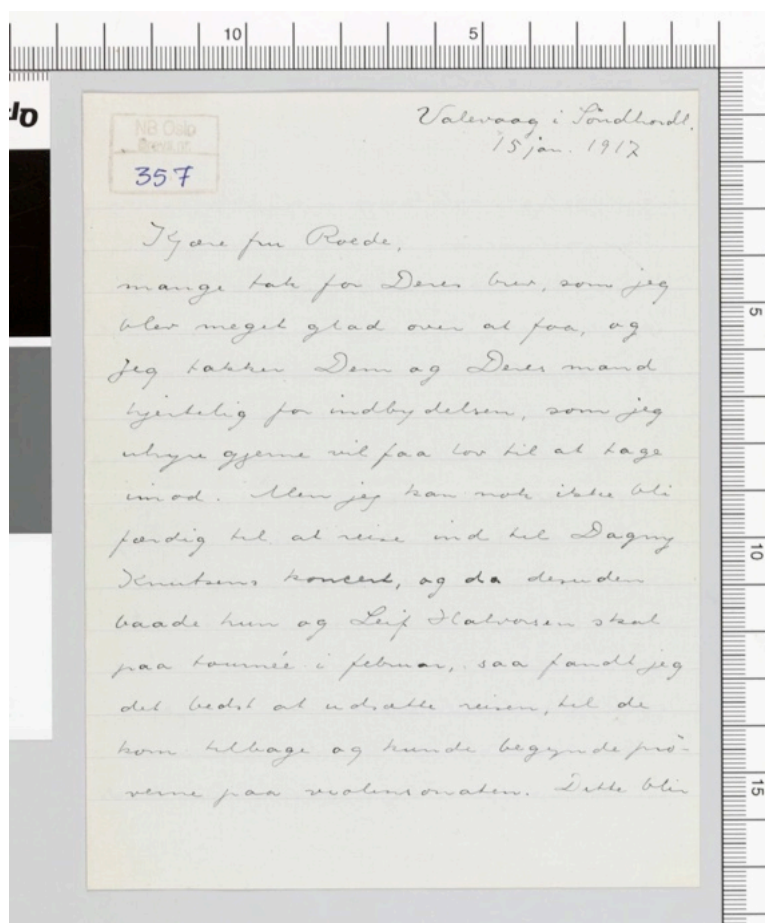 10 5
NB Oslo
Brevs. nr.
357
Valevaag i Söndhordl.
15 jan. 1917
Kjære fru Roede,
mange tak for Deres brev, som jeg
blev meget glad over at faa, og
jeg takker Dem og Deres mand
hjertelig for indbydelsen, som jeg
uhyre gjerne vil faa lov til at tage
imod. Men jeg kan nok ikke bli
færdig til at reise ind til Dagny
Knutsens koncert, og da desuden
baade hun og Leif Halvorsen skal
paa tournée i februar, saa fandt jeg
det bedst at udsætte reisen, til de
kom tilbage og kunde begynde prö-
verne paa violinsonaten. Dette blir
5
10
15